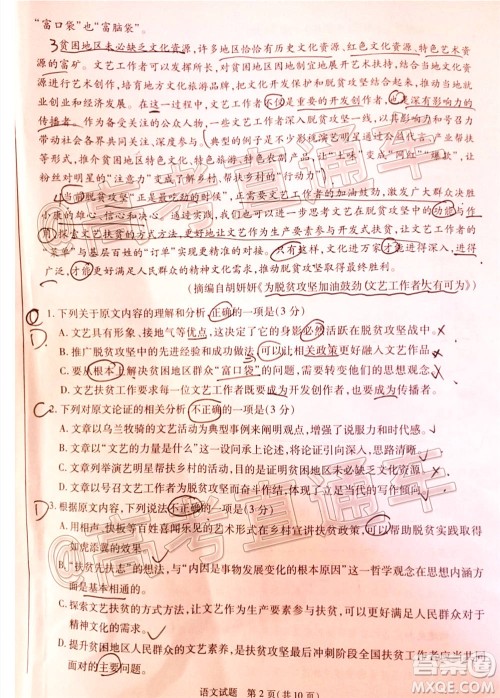 “富口袋”也“富脑袋”。
3贫困地区未必缺乏文化资源,许多地区恰恰有历史文化资源、红色文化资源、特色艺术资
源的富矿。文艺工作者可以发挥所长,
结合当地文
艺术创作活动,同时因地制宜地开展
地方文化旅游品牌,把文化开发保护和脱贫攻坚结合起来,推动当地就
业创业和经济发展。在这一过程中,文艺工作者不仅是重要的开发创作者,也是深有影响力的
传播者。作为备受关注的公众人物,一些文艺工作者深入脱贫攻坚一线,以自身影响力和号召力
带动社会各界共同参与。典型的例子是不少影视演艺明星参与脱贫攻坚,以产业帮扶、消费帮扶
等形式,推介贫困地区特色文化、特色旅游、特色产品,让“土味”变成“网红”“爆款”,让
粉丝对明星的“注意力”变成了解乡村、帮扶乡村的“行动力”。
4当前脱贫攻坚“正是最吃劲的时候”,需要文艺工作者的加油鼓劲,激发广大群众决胜
小康的雄心、信心和决心。与此同时,我们也可以进一步思考文艺在脱贫攻坚中的功能与作
用,探索文艺扶贫的方式方法,更好地让文艺作为生产要素参与扶贫,使文艺工作者的
“菜单”与基层百姓的“订单”实现更精准的对接。这样,文化扶贫才能持续下去、进得
广泛,才能更好满足人民群众的精神文化需求,推动脱贫攻坚取得最终胜利。
(摘编自胡妍妍《为脱贫攻坚加油鼓劲(文艺工作者大有可为)》
1. 下列关于原文内容的理解和分析,正确的一项是(3 分)
D
A. 文艺具有形象、接地气等优点,这决定了它的身影必然活跃在脱贫攻坚战中。
B. 推广脱贫攻坚中的先进经验和成功模式,可以让相关政策更好更快地落地生根。
C. 要从根本上解决贫困地区“富口袋”的问题,需转变贫困群众的落后的思想观念
D. 文艺扶贫工作要求每一位文艺工作者既要成为开发创作者,也要成为传播者。
2. 下列对原文论证的相关分析,不正确的一项是(3 分)
A. 文章以乌兰牧骑的文艺活动为典型事例来阐明观点,增强了说服力与时代感。
B. 文章以“文艺的力量是什么”这一设问承上启下,将论证引向深入,思路清晰。
C. 文章列举演艺明星帮扶乡村的活动,目的是证明贫困地区未必缺乏文化资源。
D. 文章以号召文艺工作者为脱贫攻坚而奋斗作结,体现了理论联系实际的写作意图。
D
3. 根据原文内容,下列说法不正确的一项是(3 分)
A. 用相声、快板等百姓喜闻乐见的艺术形式在乡村宣讲扶贫政策,可以帮助脱贫实践取得
如虎添翼的效果。
B. “扶贫先扶志”的思想,与“内因是事物发展变化的根本原因”这一哲学观念在内涵方
面是基本相通的。
C. 文艺扶贫的方式方法,让文艺作为生产要素参与扶贫,可以更好满足人民群众对于
精神文化的需求。
D. 提升贫困地区人民群众的精神面貌,是扶贫攻坚最后冲刺阶段全国扶贫工作者应当共同
面对
语文试题 第 2 页(共 10 页)
@高考直通车
@高考直通车
作业帮
MXEQ.COM